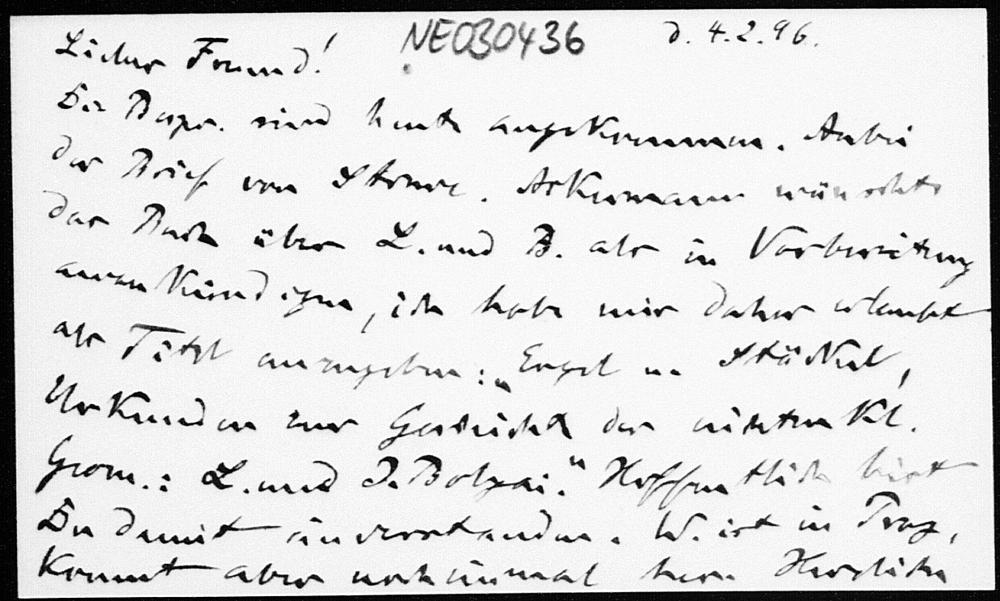 NEO30436 d. 4.2.96.
Lieber Freund!
Die Papr. sind heute angekommen. Anbei
der Brief von Struve. Ackermann wünschte
das Buch über L. und B. als in Vorbereitung
anzukündigen, ich habe mir daher erlaubt
als Titel anzugeben: „Engel u. Stäckel,
Urkunden zur Geschichte der nichteukl.
Geom.: L. und J. Bolyai." Hoffentlich bist
Du damit einverstanden. W. ist in Prag,
kommt aber noch einmal her. Herzliche